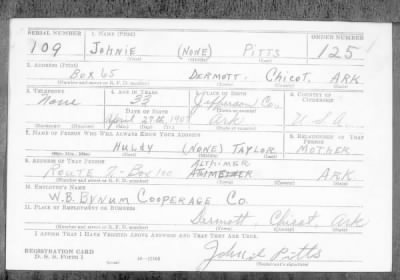 SERIAL NUMBER 1. NAME (Print) ORDER NUMBER
109 JOHNIE (NONE) PITTS 125
(First) (Middle) (Last)
2. ADDRESS (Print)
BOX 65 DERMOTT, CHICOT, ARK
(Number and street or R. F. D. number) (Town) (County) (State)
3. TELEPHONE 4. AGE IN YEARS 5. PLACE OF BIRTH 6. COUNTRY OF CITIZENSHIP
None 33 Jefferson Co.
DATE OF BIRTH
April 27th, 1907 Ark U.S.A.
(Exchange) (Number) (Mo.) (Day) (Yr.) (State or country)
7. NAME OF PERSON WHO WILL ALWAYS KNOW YOUR ADDRESS 8. RELATIONSHIP OF THAT PERSON
HULDY (NONE) TAYLOR MOTHER
(Mr., Mrs., Miss) (First) (Middle) (Last)
9. ADDRESS OF THAT PERSON ALTHIMER
ROUTE 2-BOX 100 ARK.
(Number and street or R. F. D. number) (Town) (County) (State)
10. EMPLOYER'S NAME
W.B. BYNUM COOPERAGE CO.
11. PLACE OF EMPLOYMENT OR BUSINESS
Dermott, Chicot, Ark
(Number and street or R. F. D. number) (Town) (County) (State)
I AFFIRM THAT I HAVE VERIFIED ABOVE ANSWERS AND THAT THEY ARE TRUE.
REGISTRATION CARD
D. S. S. Form 1 Pitts
(Registrant's signature)